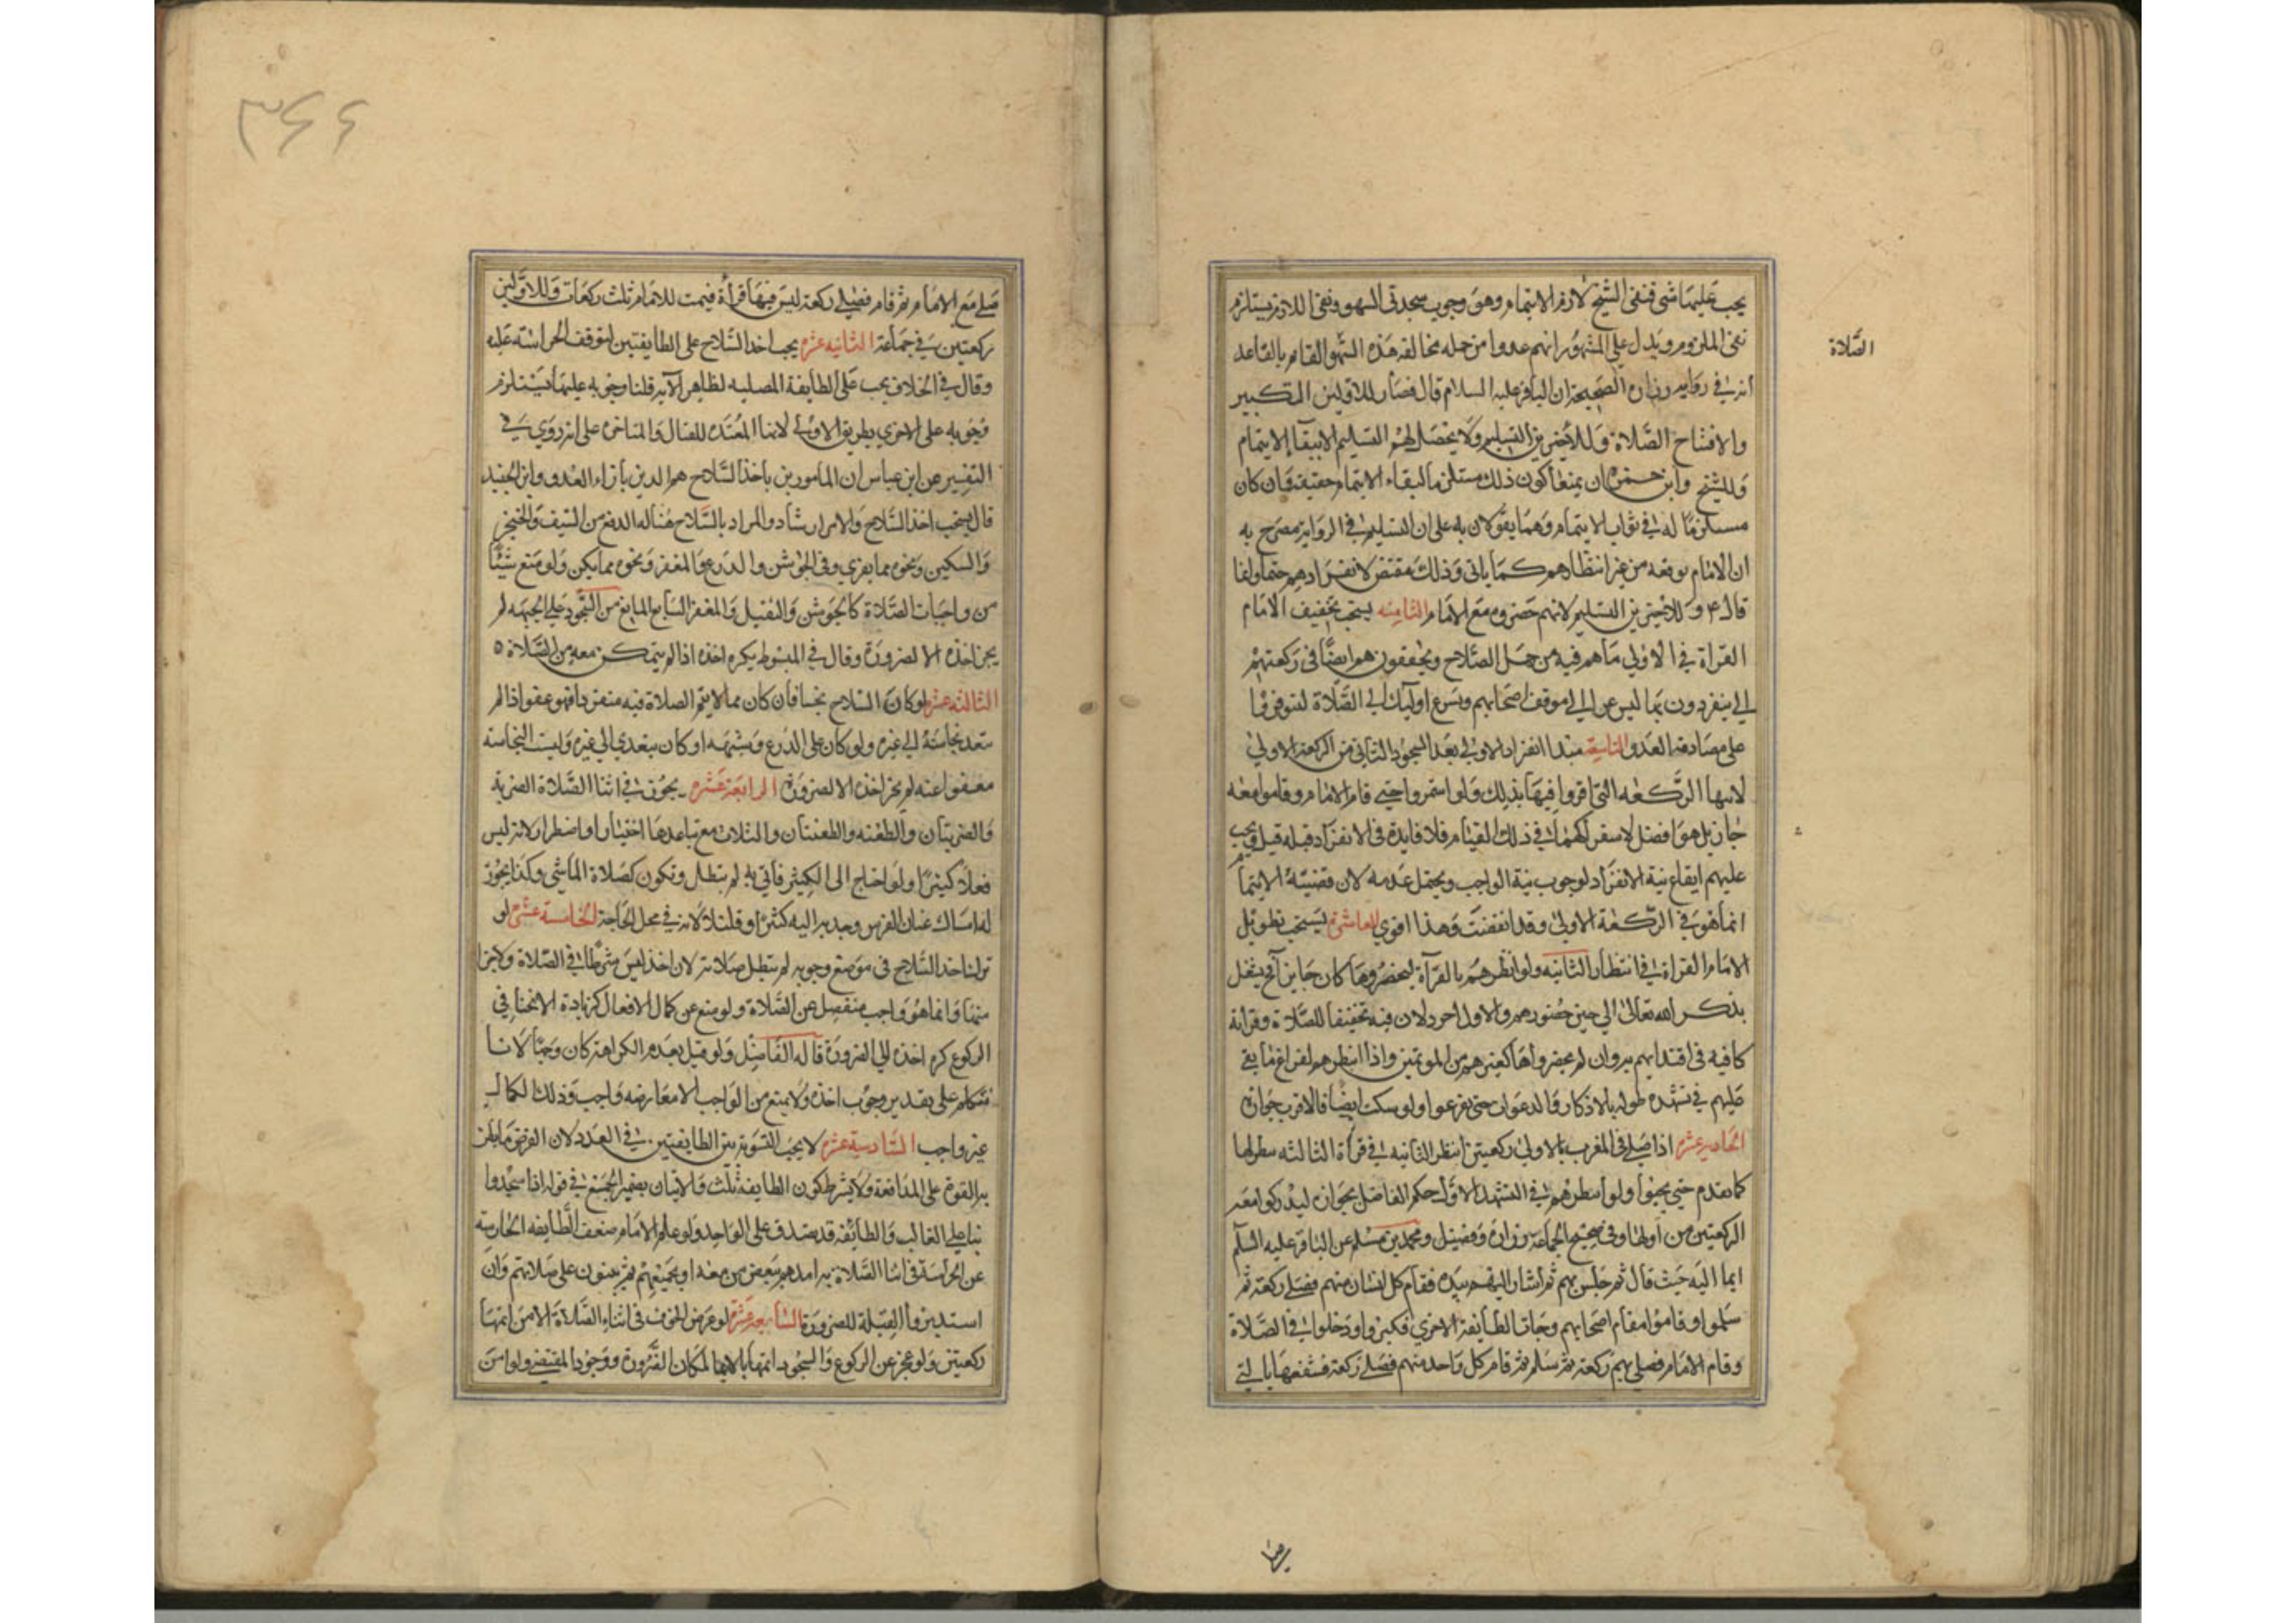 يجب عليهما شي فنفى الشيخ لازم الايتمام وهو وجوب سجدتي السهو ونفي اللازم يستلزم
نفي الملزوم ويدل على المشهور انهم عدوا من جمله مخالفه هذه السهو القائم بالقاعد
الصلاة
انه في روايه زراره الصحيحة ان الباقر عليه السلام قال فصار للاولين التكبير
والافتتاح الصلاة وللأخيرين التسليم ولا يحصل لهم التسليم الا ببقاء الايتمام
وللشيخ وابن حمزة ان يمنعا كون ذلك مستلزما لبقاء الايتمام حقيقة وان كان
مستلزما له في ثواب الايتمام وهما يقولان به على ان التسليم في الرواية مصرح به
ان الامام يوقعه من غير انتظارهم كما ياتي وذلك مقتض لانفرادهم حتما وانما
قال ع وللاخيرين التسليم لانهم حضروه مع الامام الثامنه يستحب تخفيف الامام
القراة في الاولى ما هم فيه من حمل السلاح ويخففون هم ايضا في ركعتهم
التي ينفردون بها ليسرعوا الى موقف اصحابهم ويسرع اوليك الى الصلاة لتوفرها
على مصادمة العدو التاسعة مبدا انفراد الاولى بعد السجود الثاني من الركعة الاولى
لانها الركعه التي اقروا فيها بذلك ولو استمروا حتى قام الامام وقاموا معه
جاز بل هو افضل لاستراكهما في ذلك القيام فلا فايدة في الانفراد قبله قيل ويجب
عليهم ايقاع نية الانفراد لوجوب نية الواجب ويحتمل عدمه لان قضية الايتمام
انما هو في الركعة الاولى وقد انقضت وهذا اقوى العاشرة يستحب تطويل
الامام القراة في انتظار الثانيه ولو انتظرهم بالقرآة ليحضروها كان جايزا فيشتغل
بذكر الله تعالى الى حين حضورهم والاول اجود لان فيه تخفيفا للصلاة وقراية
كافيه في اقتدايهم به وان لم يحضروها كغيرهم من الموتمين واذا انتظرهم لفراغ ما بقي
عليهم في تشهده طوله بالاذكار والدعوات حتى يفرغوا ولو سكت ايضا فالاقرب جوازه
الحاديه عشره اذا صلى في المغرب بالاولى ركعتين انتظر الثانيه في قرأة الثالثه بطولها
كما تقدم حتى يجيوا ولو انتظرهم في التشهد الاول حكم الفاضل بجوازه ليدركوا معه
الركعتين من اولها وفي صحيح الجماعة زرارة وفضيل ومحمد بن مسلم عن الباقر عليه السلام
ايما اليه حيث قال ثم جلس بهم ثم اشار اليهم بيده فقام كل انسان منهم فصلى ركعة ثم
سلموا وقاموا مقام اصحابهم وجات الطايفة الاخرى فكبروا ودخلوا في الصلاة
وقام الامام فصلى بهم ركعة ثم سلم ثم قام كل واحد منهم فصلى ركعة فشفعها بالتي
٣٤٤
صلى مع الامام ثم قام فصلى ركعة ليس فيها قرأة فتمت للامام ثلث ركعات وللاولين
ركعتين في جماعة الثانيه عشره يجب اخذ السلاح على الطايفتين لتوقف الحراسة عليه
وقال في الخلاف يجب على الطايفة المصليه لظاهر الآيه قلنا وجوبه عليها يستلزم
وجوبه على الاخرى بطريق الاولى لانها المعتده للقتال والمتاخره على انه روي في
التفسير عن ابن عباس ان المامورين باخذ السلاح هم الذين بازاء العدو وابن الجنيد
قال يستحب اخذ السلاح والامر ارشاد والمراد بالسلاح هنا اله الدفع من السيف والخنجر
والسكين ونحوه مما يفري وفي الجوشن والدرع والمغفر ونحوه مما يكن ولو منع شيئا
من واجبات الصلاة كالجوشن والثقيل والمغفر السابغ المانع من السجود على الجبهه لم
يجز اخذه الا لضرورة وقال في المبسوط يكره اخذه اذا لم يتمكن معه من الصلاة ٥
الثالثه عشره لو كان السلاح نجسا فان كان مما لا يتم الصلاة فيه منفردا فهو عفو اذا لم
تتعد نجاسته الى غيره ولو كان على الدرع وشبهه او كان يتعدى الى غيره وليست النجاسة
معفوا عنه لم يجز اخذه الا لضرورة الرابعة عشره يجوز في اثنا الصلاة الضربة
والضربتان والطعنه والطعنتان والثلاث مع تباعدها اختيارا واضطرارا لانه ليس
فعلا كثيرا ولو احتاج الى الكثير فاتى به لم تبطل وتكون كصلاة الماشي وكذا يجوز
له امساك عنان الفرس وجذبه اليه كثر او قل لانه في محل الحاجة الخامسة عشره لو
ترك اخذ السلاح في موضع وجوبه لم تبطل صلاته لان اخذ ليس شرطا في الصلاة ولا جزا
منها وانما هو واجب منفصل عن الصلاة ولو منع عن كمال الافعال كزيادة الانحنا في
الركوع كره اخذه الى الضرورة قاله الفاضل ولو قيل بعدم الكراهة كان وجها لانا
نتكلم على تقدير وجوب اخذه ولا يمنع من الواجب الا معارضه واجب وذلك الكمال
غير واجب السادسة عشره لا يجب التسوية بين الطايفتين في العدد لان الغرض ما يلزم
به القوة على المدافعة ولا يشترط كون الطايفة ثلث والاتيان بضمير الجمع في قوله اذا سجدوا
بناء على الغالب والطائفة قد يصدق على الواحد ولو علم الامام ضعف الطايفه الحارسة
عن الحراسة في اثنا الصلاة امدهم ببعض من معه او بجميعهم ثم يبنون على صلاتهم وان
استدبروا القبلة للضرورة السابعة عشره لو عرض الخوف في اثناء الصلاة الامن اتمها
ركعتين ولو عجز عن الركوع والسجود اتمها بالايما لمكان الضرورة ووجود المقتضي ولو امن